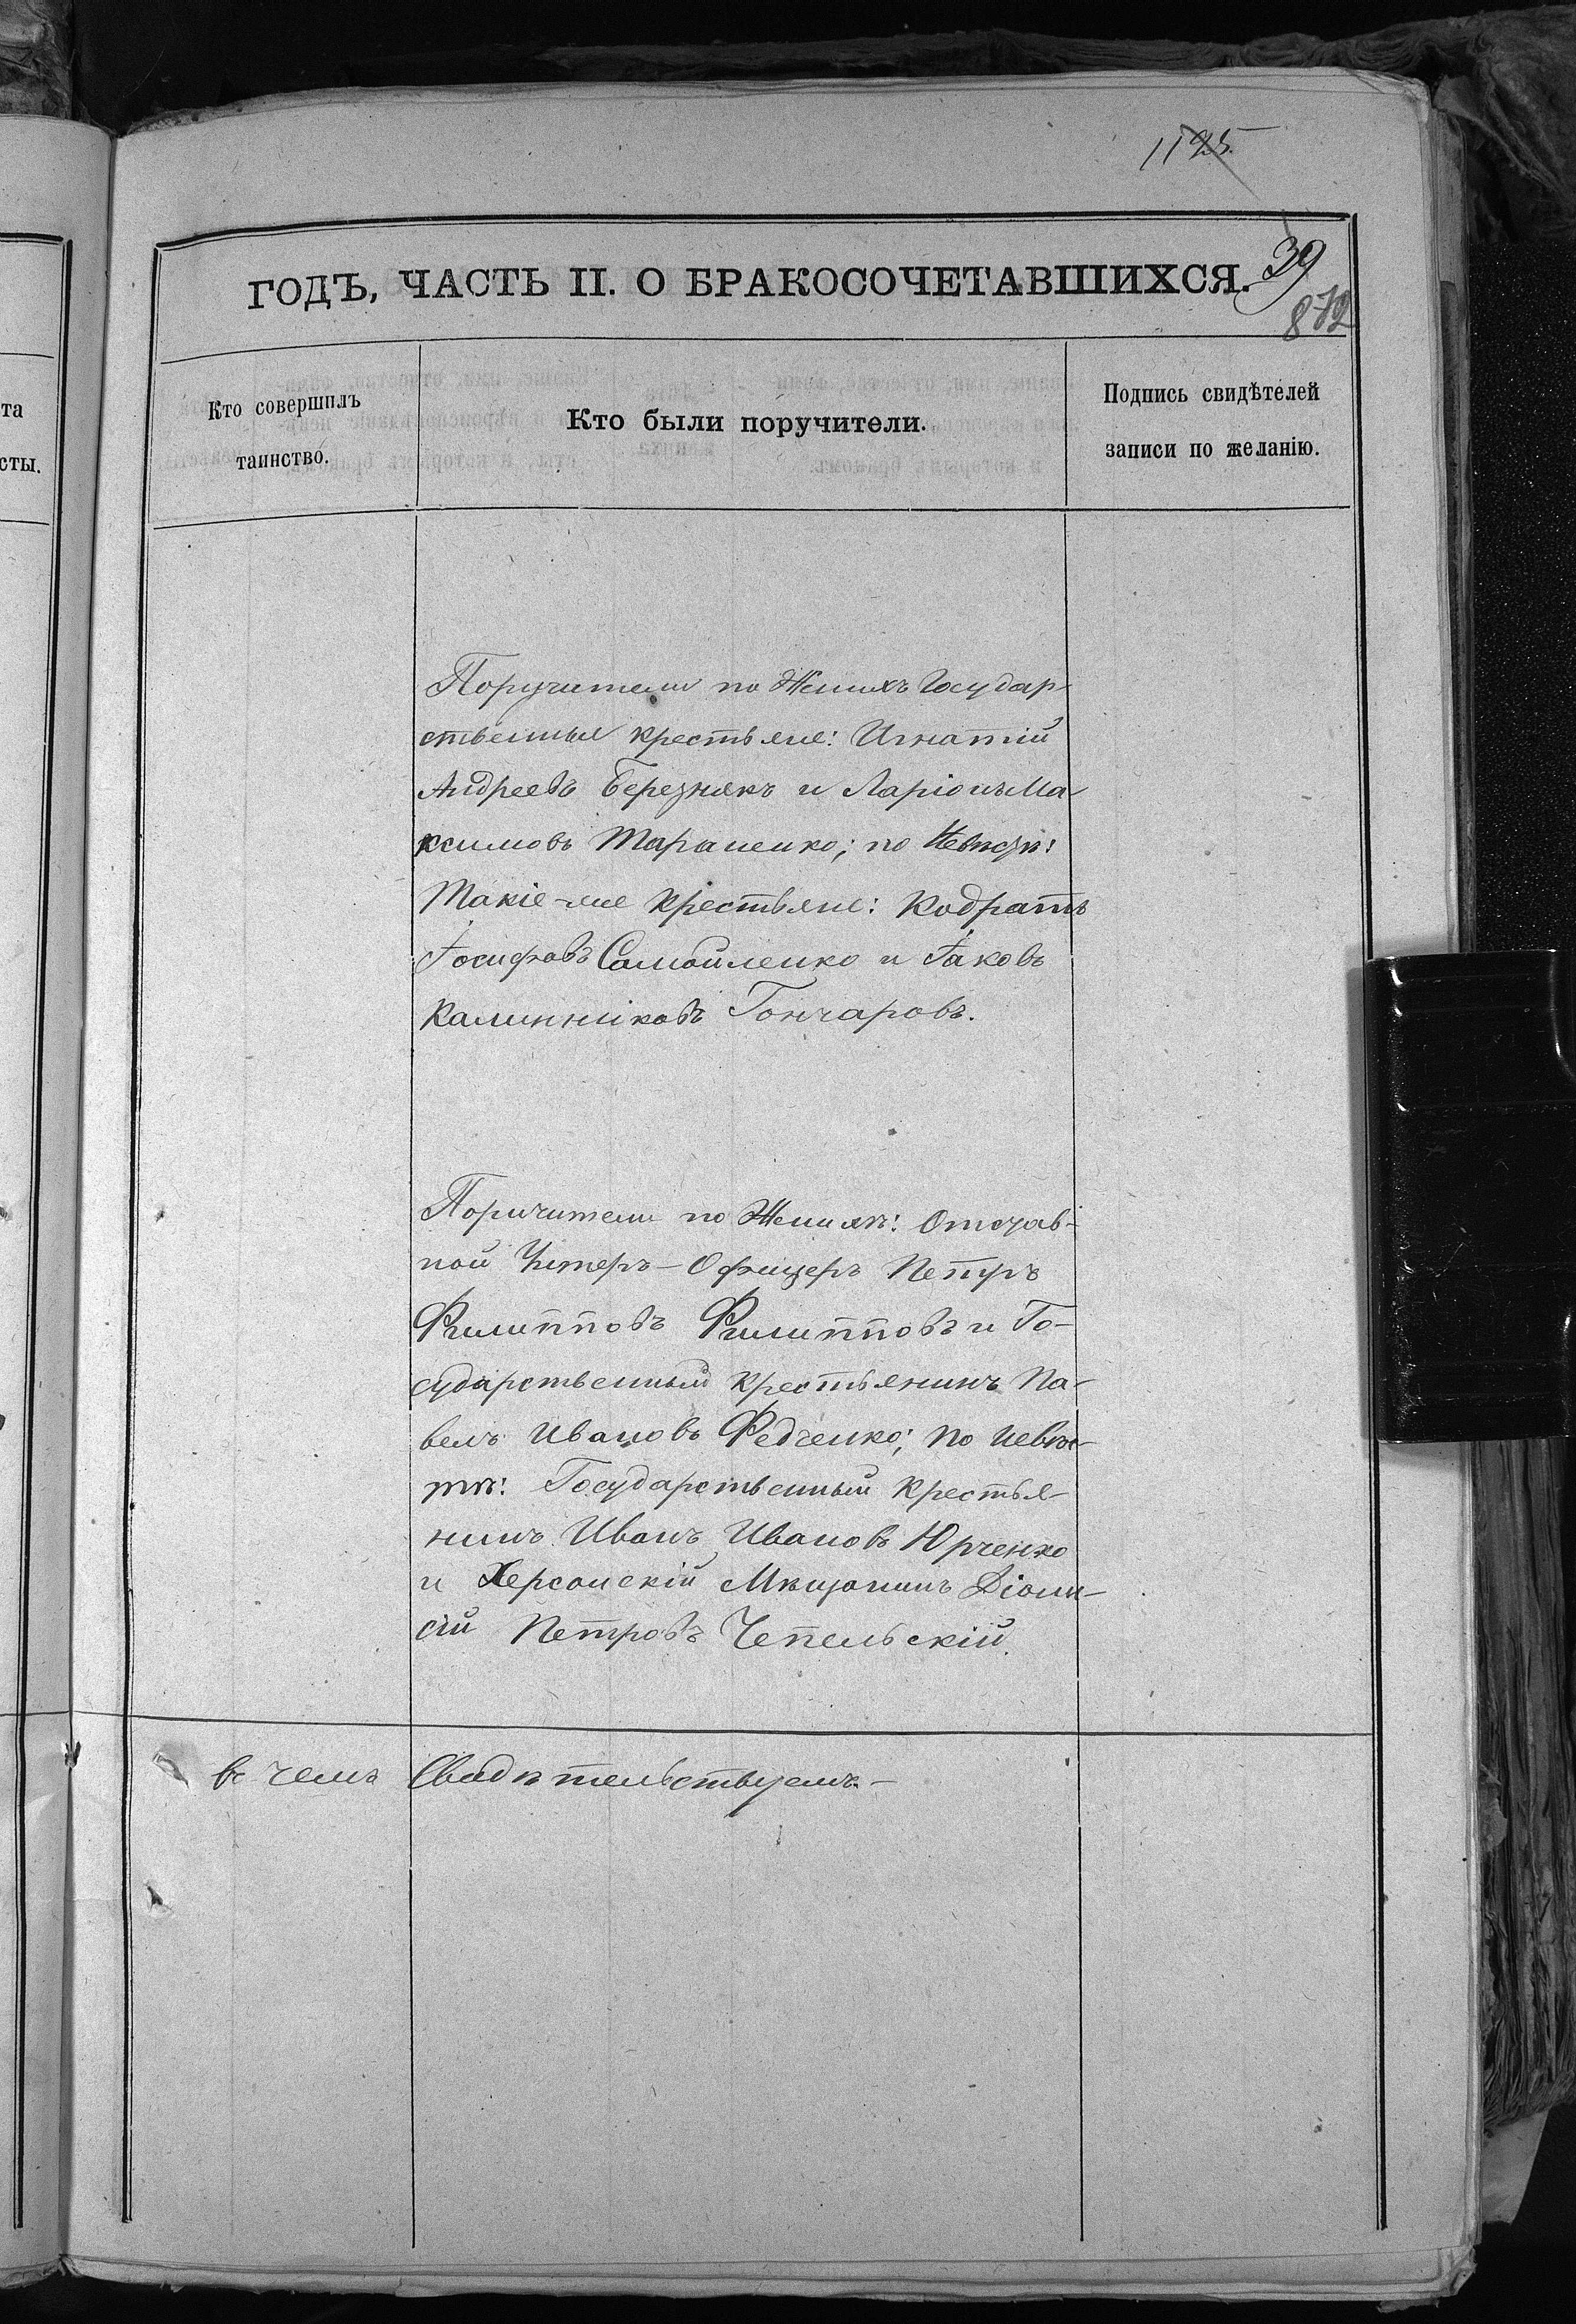 1125.
39
ГОДЪ, ЧАСТЬ II. О БРАКОСОЧЕТАВШИХСЯ.
872
та
сты.
Кто совершилъ
таинство.
Кто были поручители.
Подпись свидѣтелей
записи по желанію.
Поручители по Женихѣ Государ-
ственные крестьяне: Игнатій
Андреевъ Березнякъ и Ларіонъ Ма-
ксимовъ Тараненко; по Невѣстѣ:
Такіе-же Крестьяне: Кодратъ
Іосифовъ Самойленко и Іаковъ
Калинниковъ Гончаровъ.
Поручители по Женихѣ: Отстав-
ной Унтеръ-Офицеръ Петръ
Филипповъ Филипповъ и Го-
сударственный Крестьянинъ Па-
велъ Ивановъ Федченко; по Невѣс-
тѣ: Государственный Крестья-
нинъ Иванъ Ивановъ Юрченко
и Херсонскій Мѣщанинъ Діони-
сій Петровъ Чепельскій.
въ чемъ Свидѣтельствуемъ.-